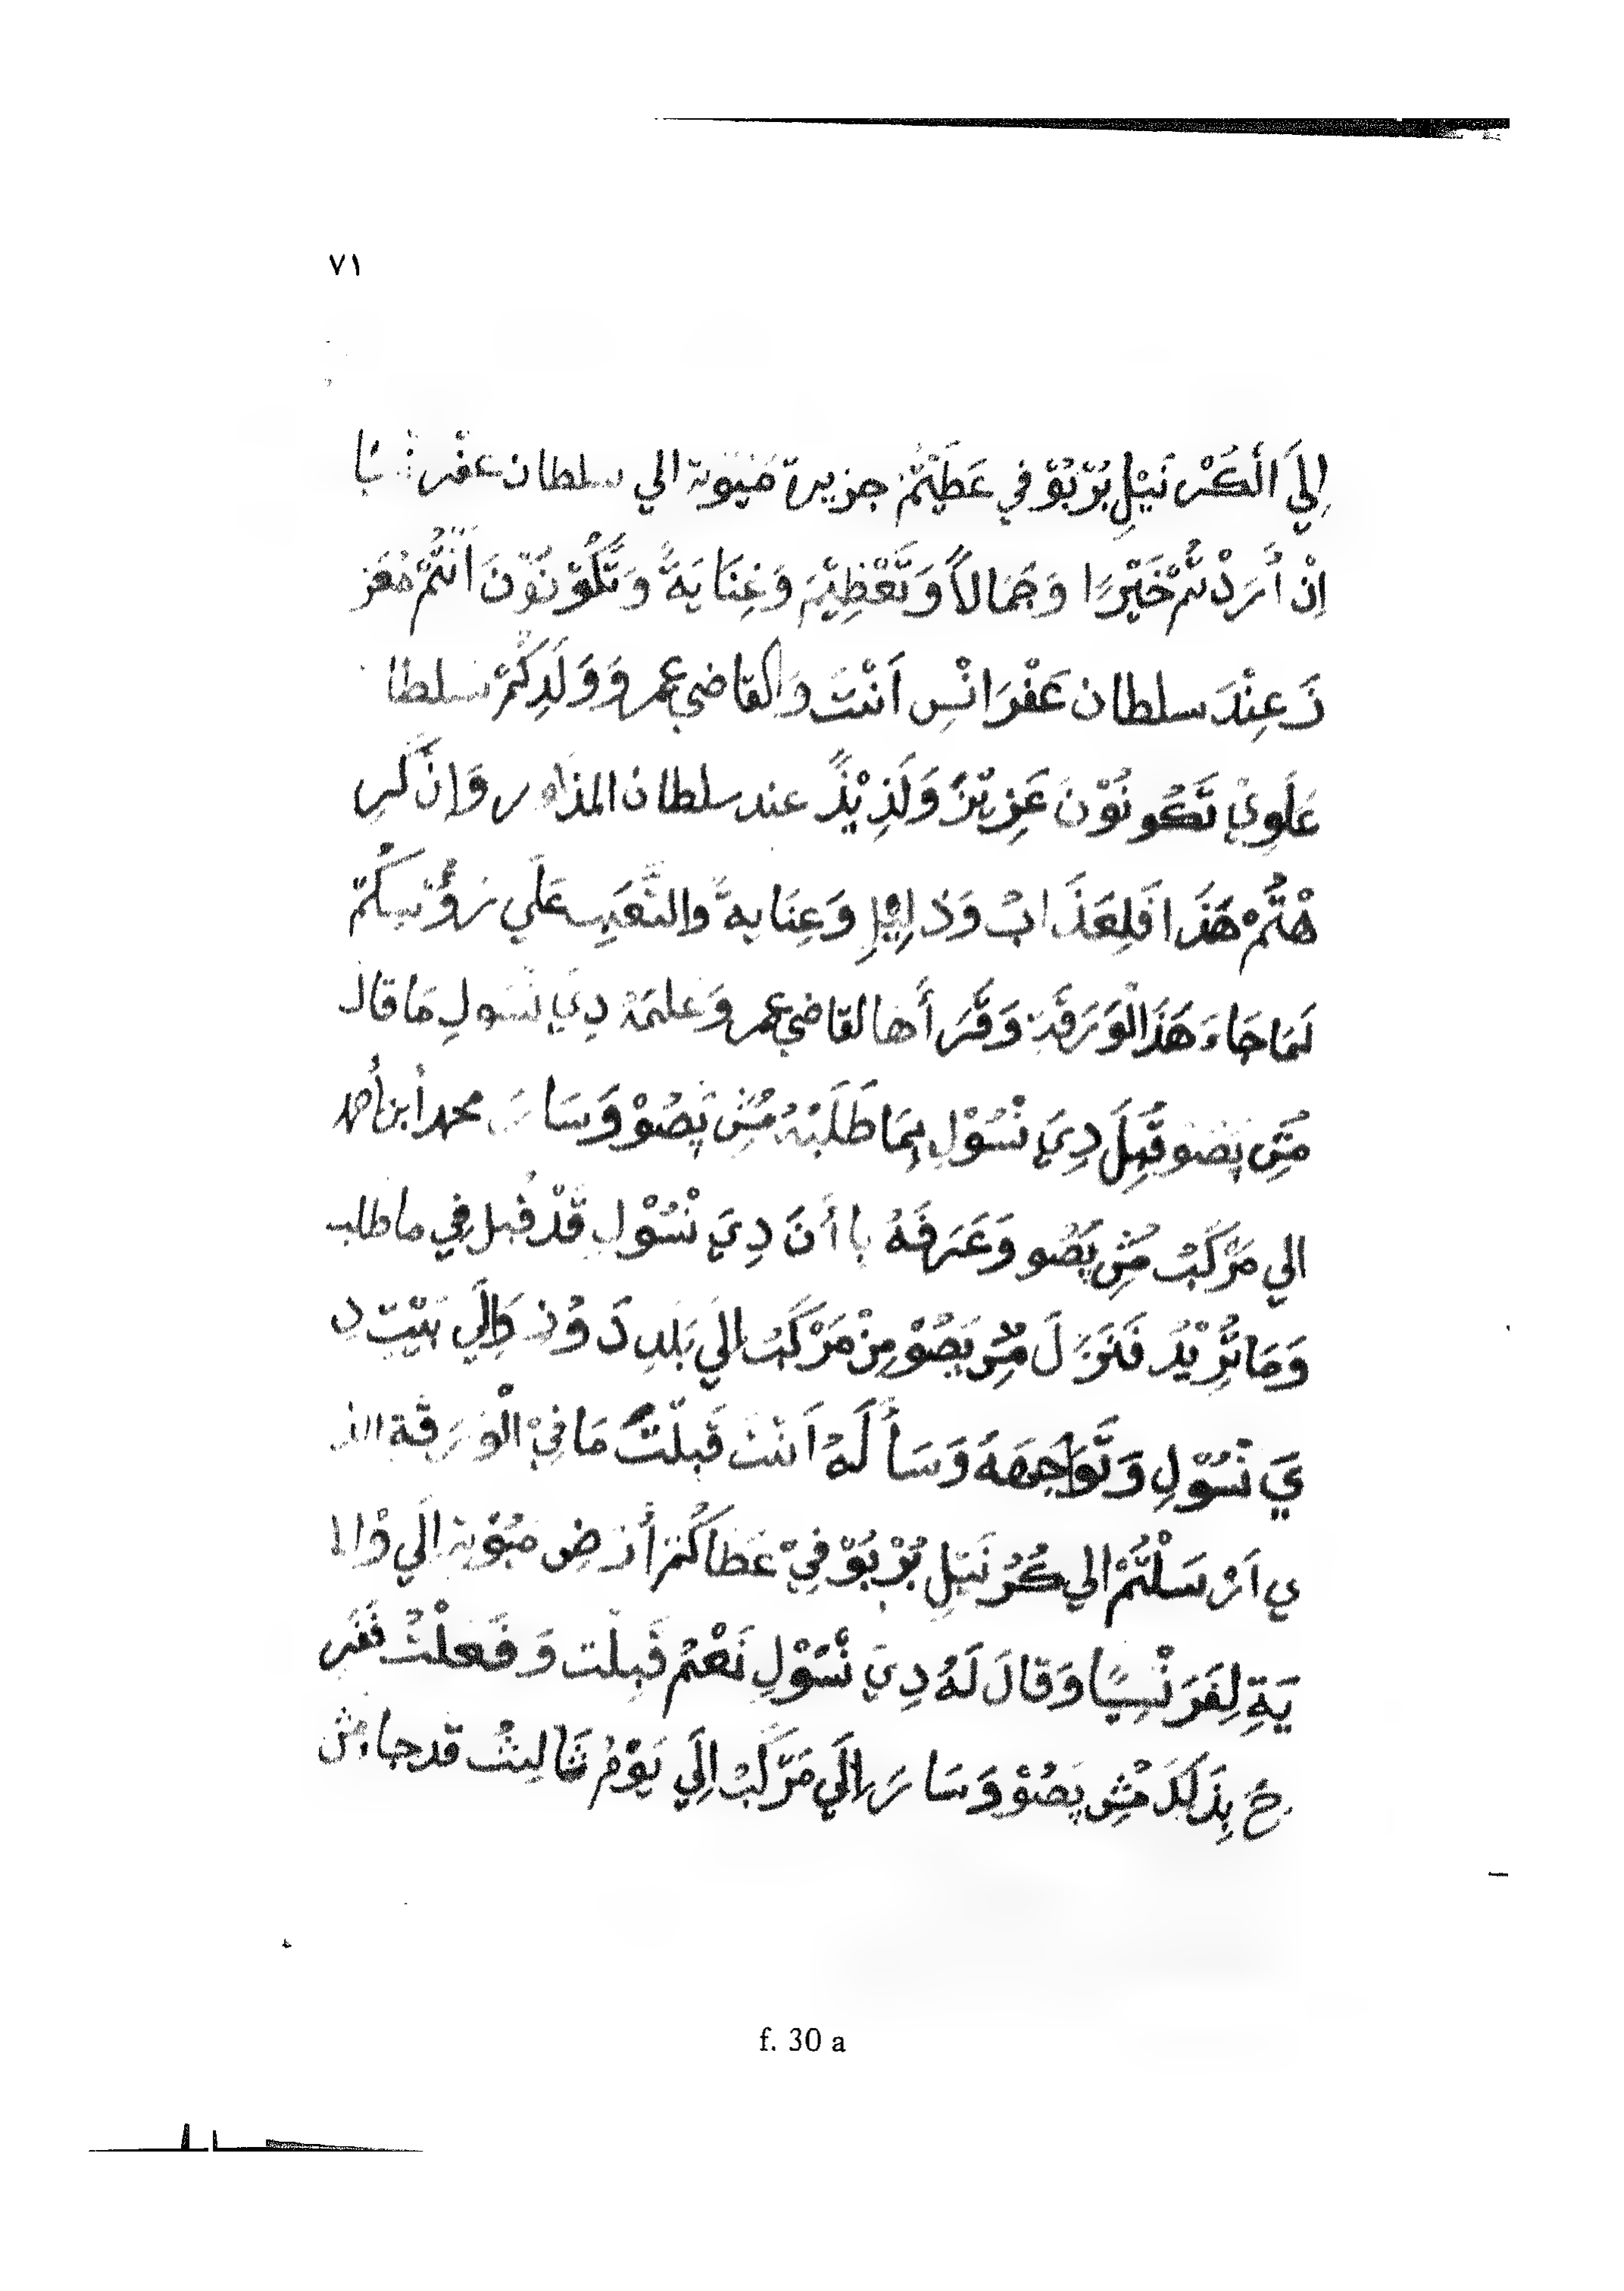 ٧١
اِلَي الَكُرْنَيْلِ بُرْبُوْ في عَطَيْتُمْ جزيرة مَيُوتة الي سلطان
اِنْ أَرَدْتُمْ خَيْرًا وَجَمَالاً وَتَعْظِيْمَ وَغِنَايَةً وَتَكُوْنُوْنَ أَنْتُمْ مُعَز
زَ عِنْدَ سلطان عَفْرَانْسِ اَنْتَ وَالقاضي عمر وَوَلَدِكُمْ سلطا
عَلَوِيْ تَكُونُوْنَ عَزِيْزً وَلَذِيْذً عند سلطان المذكور وَاِنْ كَرِ
هْتُمْ هَذَا فَلِعَذَابْ وَذَلِيْلِ وَعِنَايةً والتَّعَبِ عَلَي رُؤُسِكُمْ
لَمَا جَاءَ هَذَالْوَرَقَةِ وَقَرَأَهَا لقاضي عمر وَعلمَهُ دِيَ نْسُولِ مَا قال
مُسِ پَصُو قَبِلَ دِيَ نْسُوْلِ بِمَا طَلَبَهُ مُسِ پَصُوْ وَسَارَ محمد أبن أحمد
الي مَرْكَبْ مُسِ پَصُو وَعَرَفَهُ بِا أَنَ دِيَ نْسُوْلِ قَدْ قبل في ما طلب
وَمَا تُرِيْدُ فَنَزَلَ مُسِ پَصُوْ مِنْ مَرْكَبْ الي بَلَدِ دَوُنِ وَاِلَي بَيْتِ دِ
يَ نْسُوْلِ وَتَوَاجَهَهُ وَسَأَلَهُ اَنْتَ قَبِلْتَ مَا فِيْ الْوَرَقَةِ الذ
ي اَرْسَلْتُمْ الي كُرْنَيْلِ بُرْبُوْ فِيْ عَطَاكُمْ أَرْضِ مَيُوْتة اِلَي
يَةِ لِفَرَنْسِيًا وَقَالَ لَهُ دِيَ نْسُوْلِ نَعْمْ قَبِلْت وَفَعلْتُ فَفَرِ
حَ بِذَلَكَ مُسِ پَصُوْ وَسَارَ اِلَي مَرْكَبْ اِلَي يَوْمُ ثَالِثْ قد جاء مُس
f. 30 a